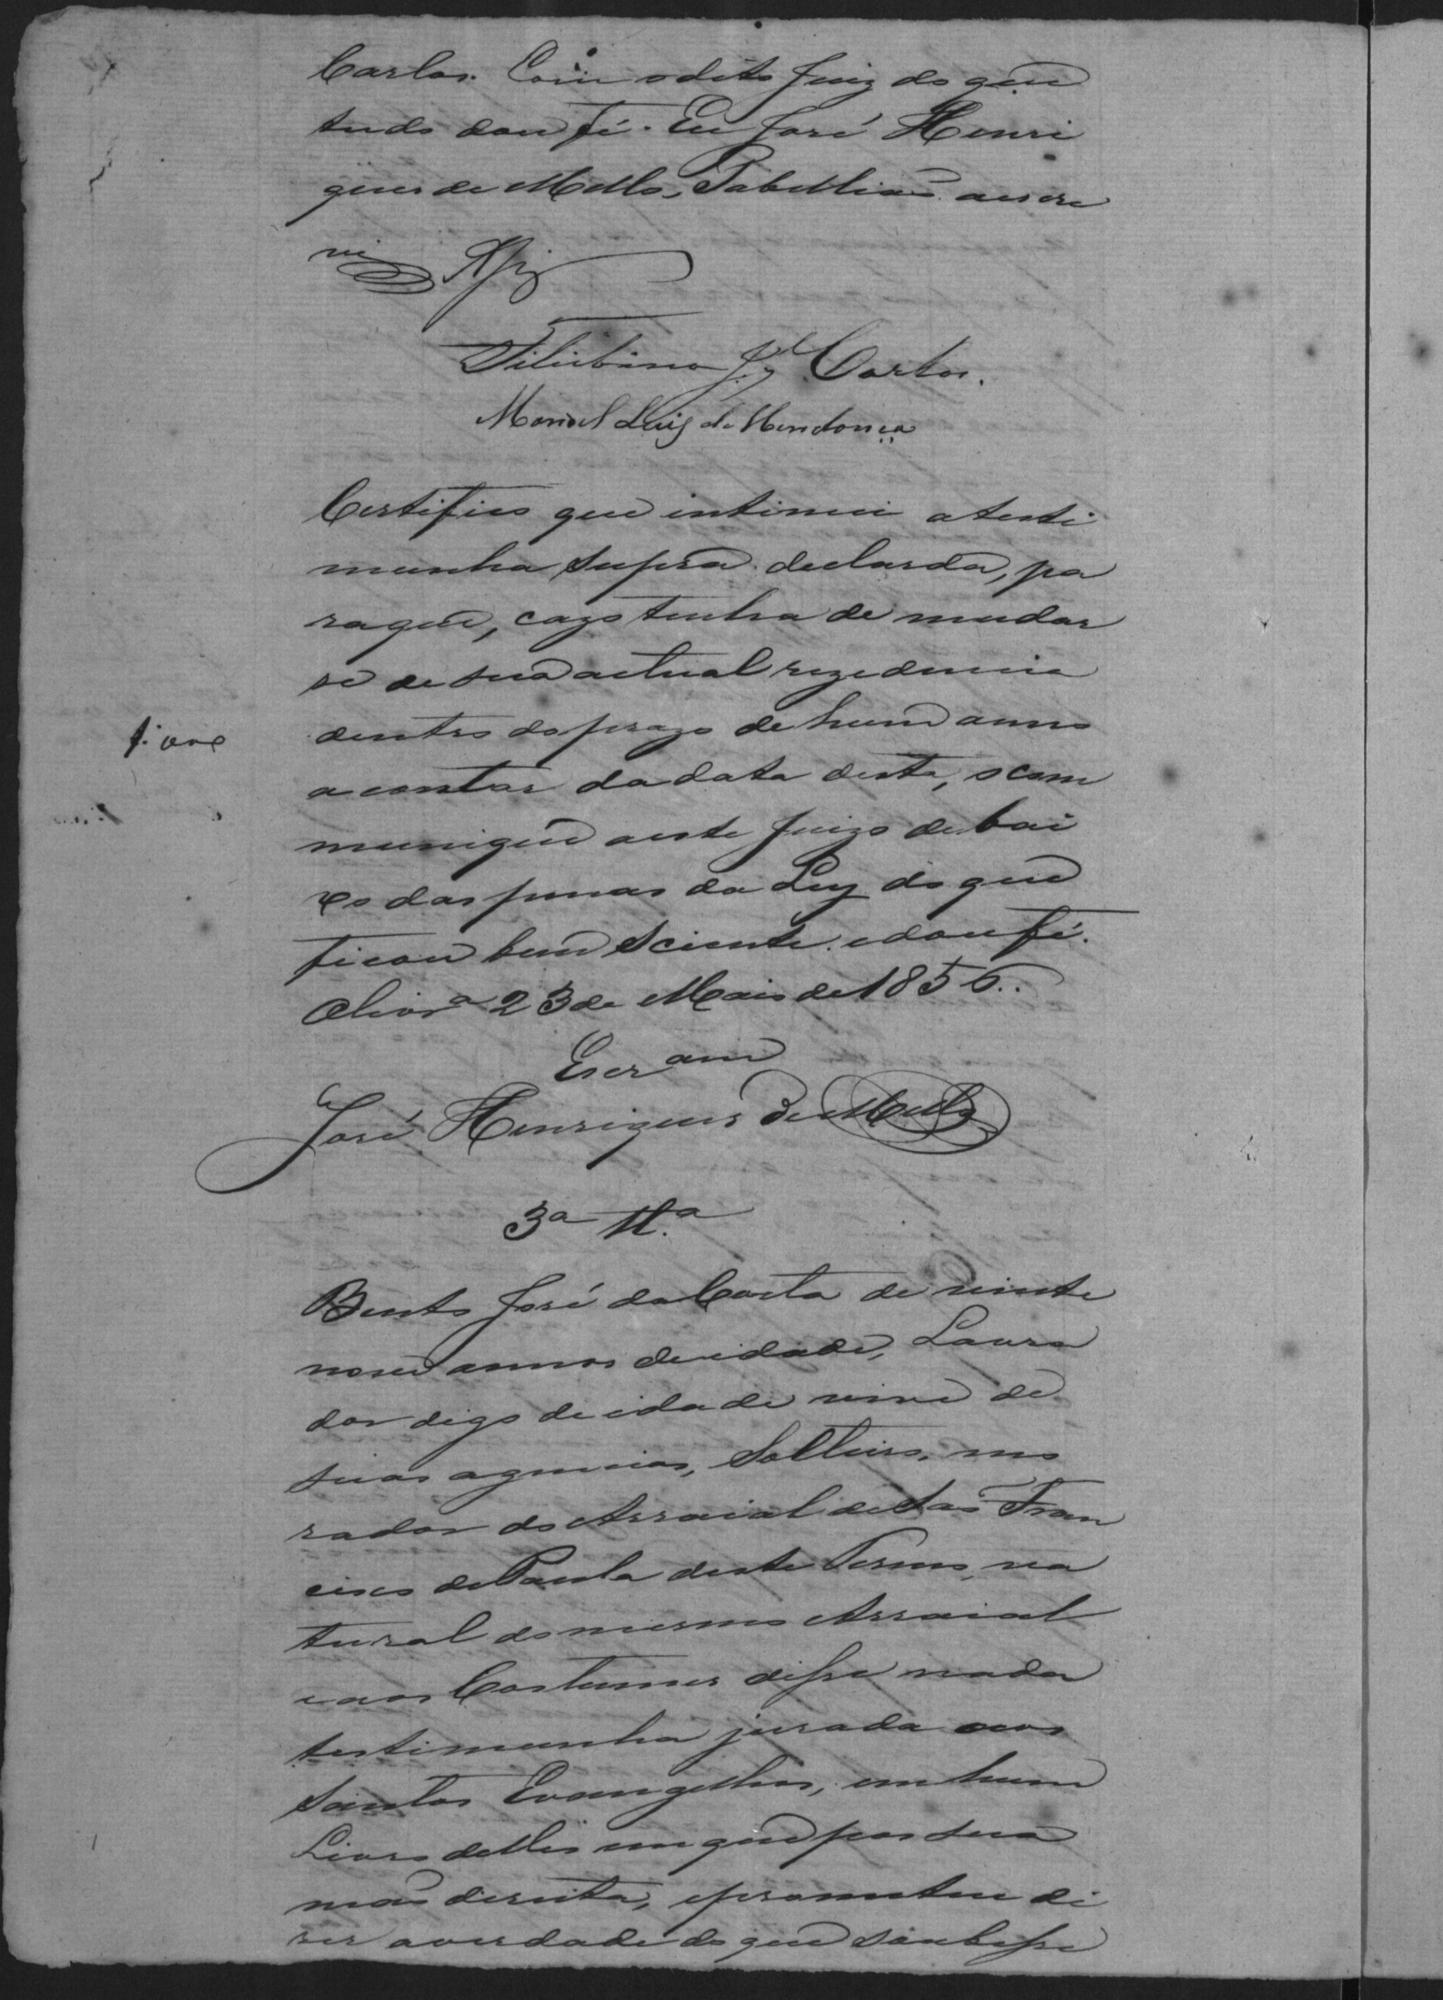 Carlos. Com o dito Juiz do que
tudo dou fé. Eu José Henri
ques de Mello, Tabellião a escre
vi
Carlos.
Manoel Luis de Mendonça
Certifico que intimei a testi
munha supra declarda, pa
raque, cazo tenha de mudar
se de sua actual rezedencia
dentro do prazo de hum anno
a contar da data deste, o com
munique a este Juizo debai
xo das penas da Ley do que
ficou bem sciente e dou fé.
Olivrª 23 de Maio de 1856.
Escram
José Henriques de Mello
3ª Tª
Bento José da Costa de vinte
nove annos de idade, Lavra
dor digo de idade vive de
suas agencias, Solteiro, mo
rador do Arraial de São Fran
cisco de Paula deste Termo, na
tural do mesmo Arraial
e aos Costumes disse nada
testimunha jurada aos
Santos Evangelhos, em hum
Livro delles em que pos sua
mão direita, e prometeu di
zer a verdade do que soubesse